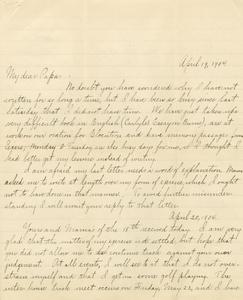 April 19, 1904
My dear Papa:
No doubt you have wondered why I have not
written for so long a time, but I have been so busy since last
Saturday that I did not have time. We have just taken up a
very difficult book in English (Carlyle's Essay on Burns), are at
work on our oration for Elocution and have memory passages from
Cicero; Monday & Tuesday are the busy days for me, so I thought I
had better get my lessons instead of writing.
I am afraid my last letter needs a word of explanation. Mama
asked me to work at length on my form of egress, which I ought
not to have known that means. To avoid further misunder-
standing I will await your reply to that letter.
April 20, 1904.
Yours and Mama's of the 18th received today. I am very
glad that the matter of my egress is settled, but hope that
you did not allow me to continue track against your own
judgement. At all events, I will see to it that I do not over-
strain myself and that I get in some golf playing. The
inter track meet occurs on Friday, May 22, and I must